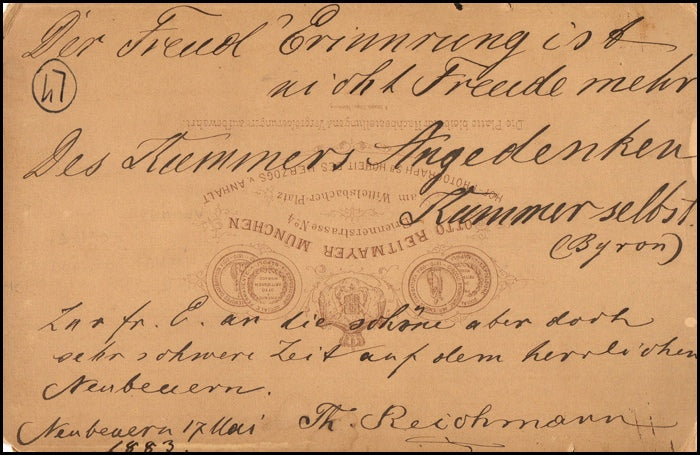 Der Freud' Erinnrung ist
nicht Freude mehr
47
Des Kummers Angedenken
Kummer selbst.
(Byron)
Zur fr. E. an die schöne aber doch
sehr schwere Zeit auf dem herrlichen
Neubeuern.
Neubeuern 17 Mai
1883.
Th. Reichmann
Die Platte bleibt für Nachbestellung und Vergrösserungen aufbewahrt.
HOF-PHOTOGRAPH Sr HOHEIT DES HERZOGS v. ANHALT
am Wittelsbacher-Platz
Briennerstrasse No 4
OTTO REITMAYER MÜNCHEN